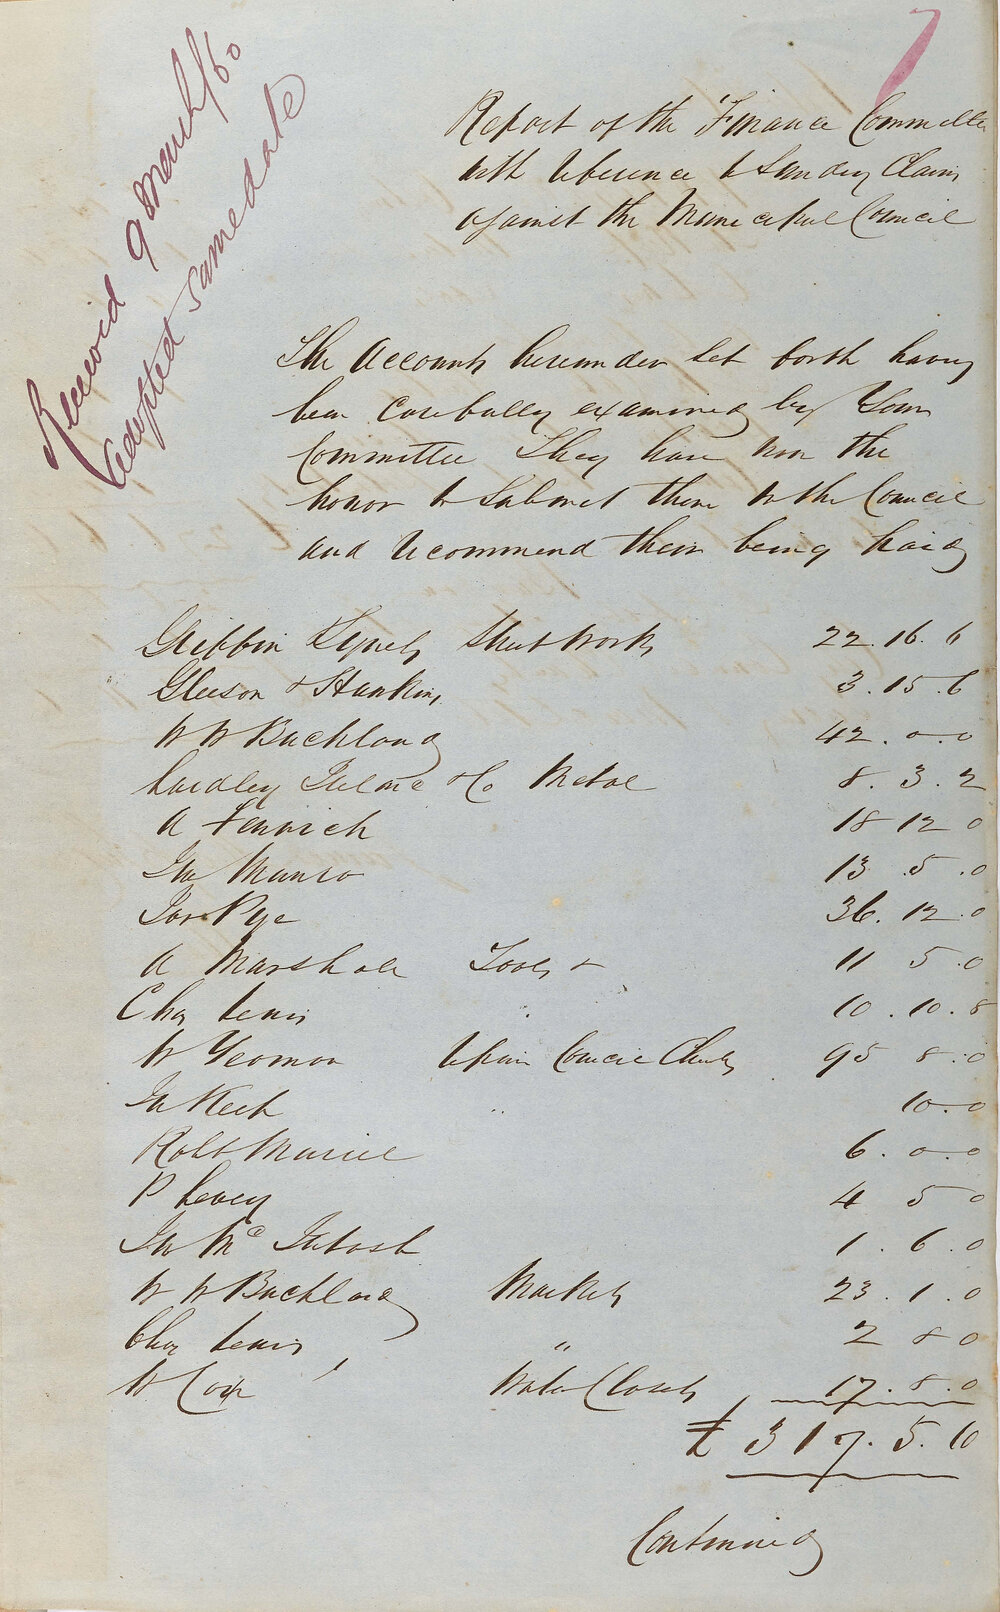 Received 9 March/60
adopted same date
Report of the Finance Committee
with reference to Sundry Claims
against the Municipal Council
The Accounts hereunder set forth having
been Carefully examined by Your
Committee They have now the
honor to Submit them to the Council
and recommend their being paid
Gibbin Lynch Street Work 22.16.6
Gleeson & Hawkins 3.15.6
W W Buckland 42.0.0
Laidley Ireland & Co Metal 8.3.2
A Fenwick 18 12 0
Jno Munro 13.5.0
Jas Pye 36.12.0
A Marshall Tools & 11 5.0
Chas Lewis 10.10.8
W Yeoman Repair Council Chambers 95 8.0
Jn Keck " 10.0
Robt Muriel 6.0.0
P Levey 4 5 0
Jno McIntosh 1.6.0
W W Buckland Markets 23.1.0
Chas Lewis " 2 8 0
W Cox Water Closets 17.8.0
£317.5.10
Continued